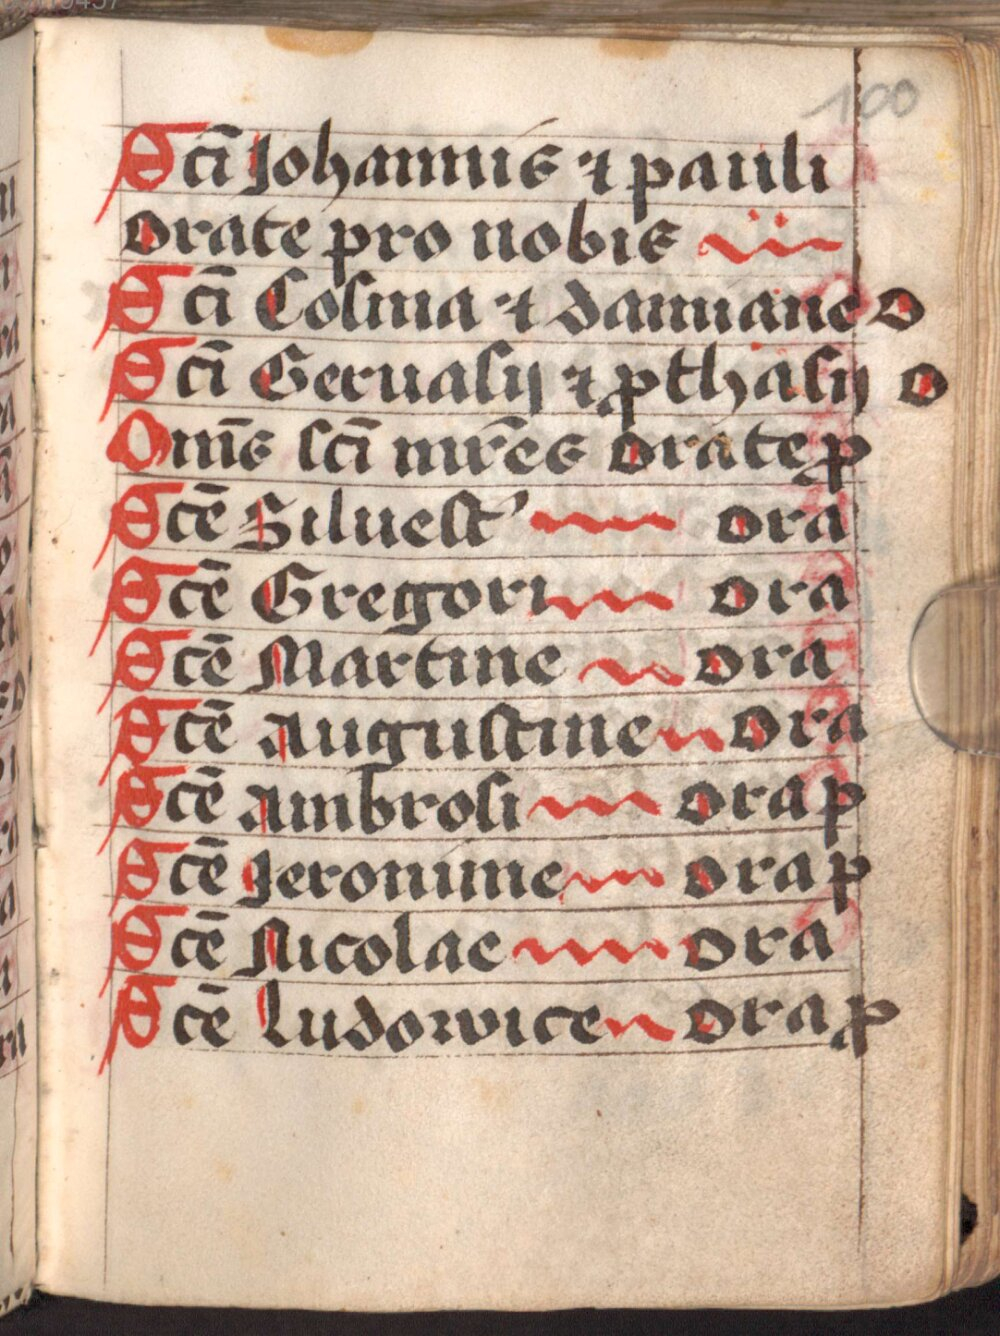 100
Sc̄i Johannis ⁊ pauli
orate pro nobis
Sc̄i Cosma ⁊ damiane o
Sc̄i Geruasij ⁊ ꝓthasij o
Om̄s sc̄i mr̄es orate ꝓ
Sc̄e Siluest᾽ ora
Sc̄e Gregori ora
Sc̄e Martine ora
Sc̄e Augustine ora
Sc̄e ambrosi ora p
Sc̄e Jeronime ora p
Sc̄e Nicolae ora
Sc̄e Ludowice ora ꝓ